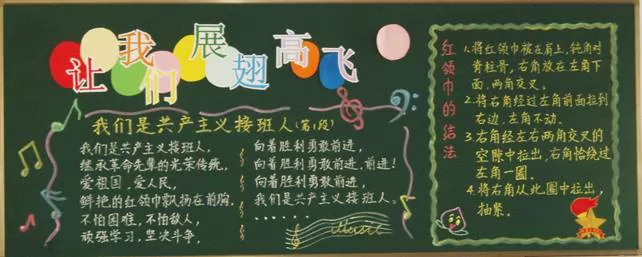 让我们展翅高飞
我们是共产主义接班人(第1段)
我们是共产主义接班人,
继承革命先辈的光荣传统,
爱祖国,爱人民,
鲜艳的红领巾飘扬在前胸.
不怕困难,不怕敌人,
顽强学习,坚决斗争,
向着胜利勇敢前进,
向着胜利勇敢前进,前进!
向着胜利勇敢前进,
我们是共产主义接班人.
......
Music
红领巾的结法
1.将红领巾披在肩上,钝角对
脊柱骨,右角放在左角下
面,两角交叉。
2.将右角经过左角前面拉到
右边,左角不动。
3.右角经左右两角交叉的
空隙中拉出,右角恰绕过
左角一圈。
4.将右角从此圈中拉出,
抽紧。